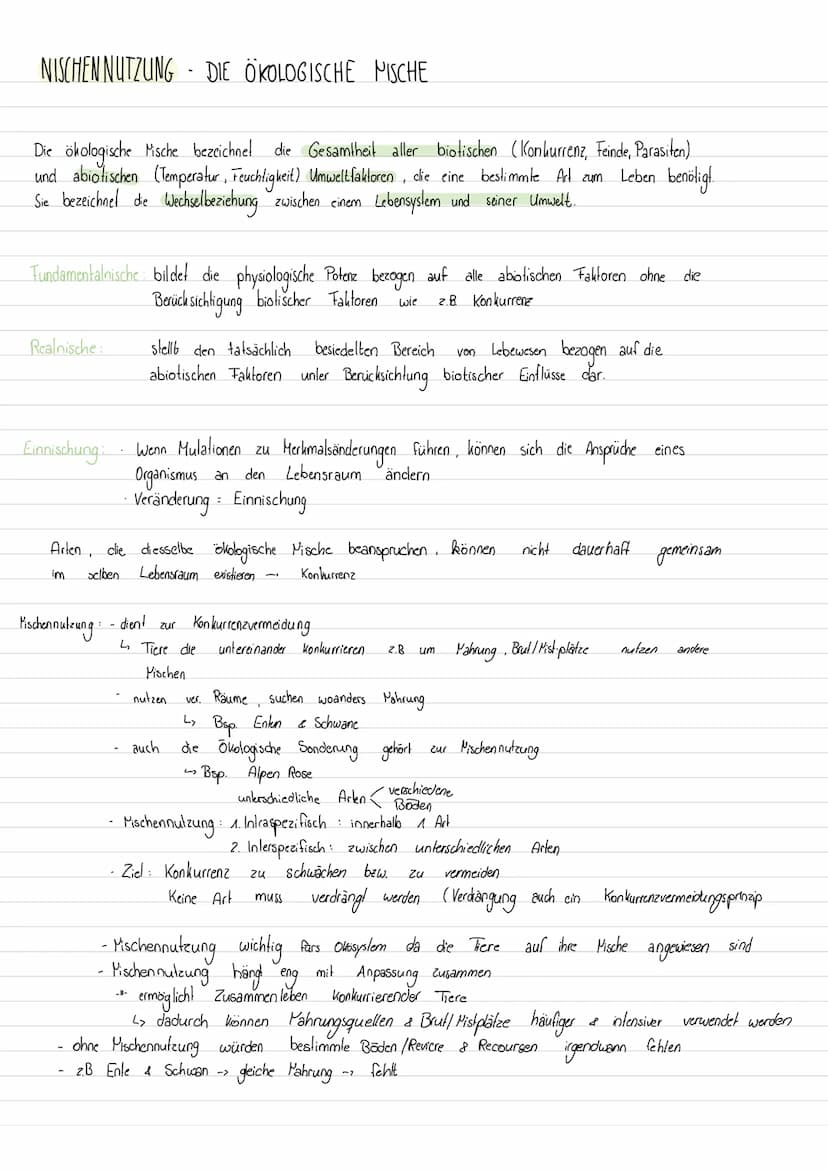 NISCHENNUTZUNG - DIE ÖKOLOGISCHE NISCHE
Die ökologische Nische bezeichnet die Gesamtheit aller biotischen (Konkurrenz, Feinde, Parasiten)
und abiotischen (Temperatur, Feuchtigkeit) Umweltfaktoren, die eine bestimmte Art zum Leben benötigt.
Sie bezeichnet die Wechselbeziehung zwischen einem Lebensystem und seiner Umwelt.
Fundamentalnische: bildet die physiologische Potenz bezogen auf alle abiotischen Faktoren ohne die
Berücksichtigung biotischer Faktoren wie z.B Konkurrenz
Realnische: stellt den tatsächlich besiedelten Bereich von Lebewesen bezogen auf die
abiotischen Faktoren unter Berücksichtung biotischer Einflüsse dar.
Einnischung: · Wenn Mutationen zu Merkmalsänderungen führen, können sich die Ansprüche eines
Organismus an den Lebensraum ändern
· Veränderung = Einnischung
Arten, die diesselbe ökologische Nische beanspruchen, können nicht dauerhaft gemeinsam
im selben Lebensraum existieren → Konkurrenz
Nischennutzung: - dient zur Konkurrenzvermeidung
↳ Tiere die untereinander konkurrieren z.B um Nahrung, Brut/Nistplätze nutzen andere
Nischen
- nutzen ver. Räume, suchen woanders Nahrung
↳ Bsp. Enten & Schwäne
- auch die Ökologische Sonderung gehört zur Nischennutzung
↳ Bsp. Alpen Rose
unterschiedliche Arten < verschiedene
Böden
- Nischennutzung: 1. Intraspezifisch: innerhalb 1 Art
2. Interspezifisch: zwischen unterschiedlichen Arten
· Ziel: Konkurrenz zu schwächen bzw. zu vermeiden
Keine Art muss verdrängt werden (Verdrängung auch ein Konkurrenzvermeidungsprinzip
- Nischennutzung wichtig fürs Ökosystem da die Tiere auf ihre Nische angewiesen sind
- Nischennutzung hängt eng mit Anpassung zusammen
→ ermöglicht Zusammenleben konkurrierender Tiere
↳ dadurch können Nahrungsquellen & Brut/Nistplätze häufiger & intensiver verwendet werden
- ohne Nischennutzung würden bestimmte Böden/Reviere & Recoursen irgendwann fehlen
- z.B Ente & Schwan -> gleiche Nahrung -> fehlt